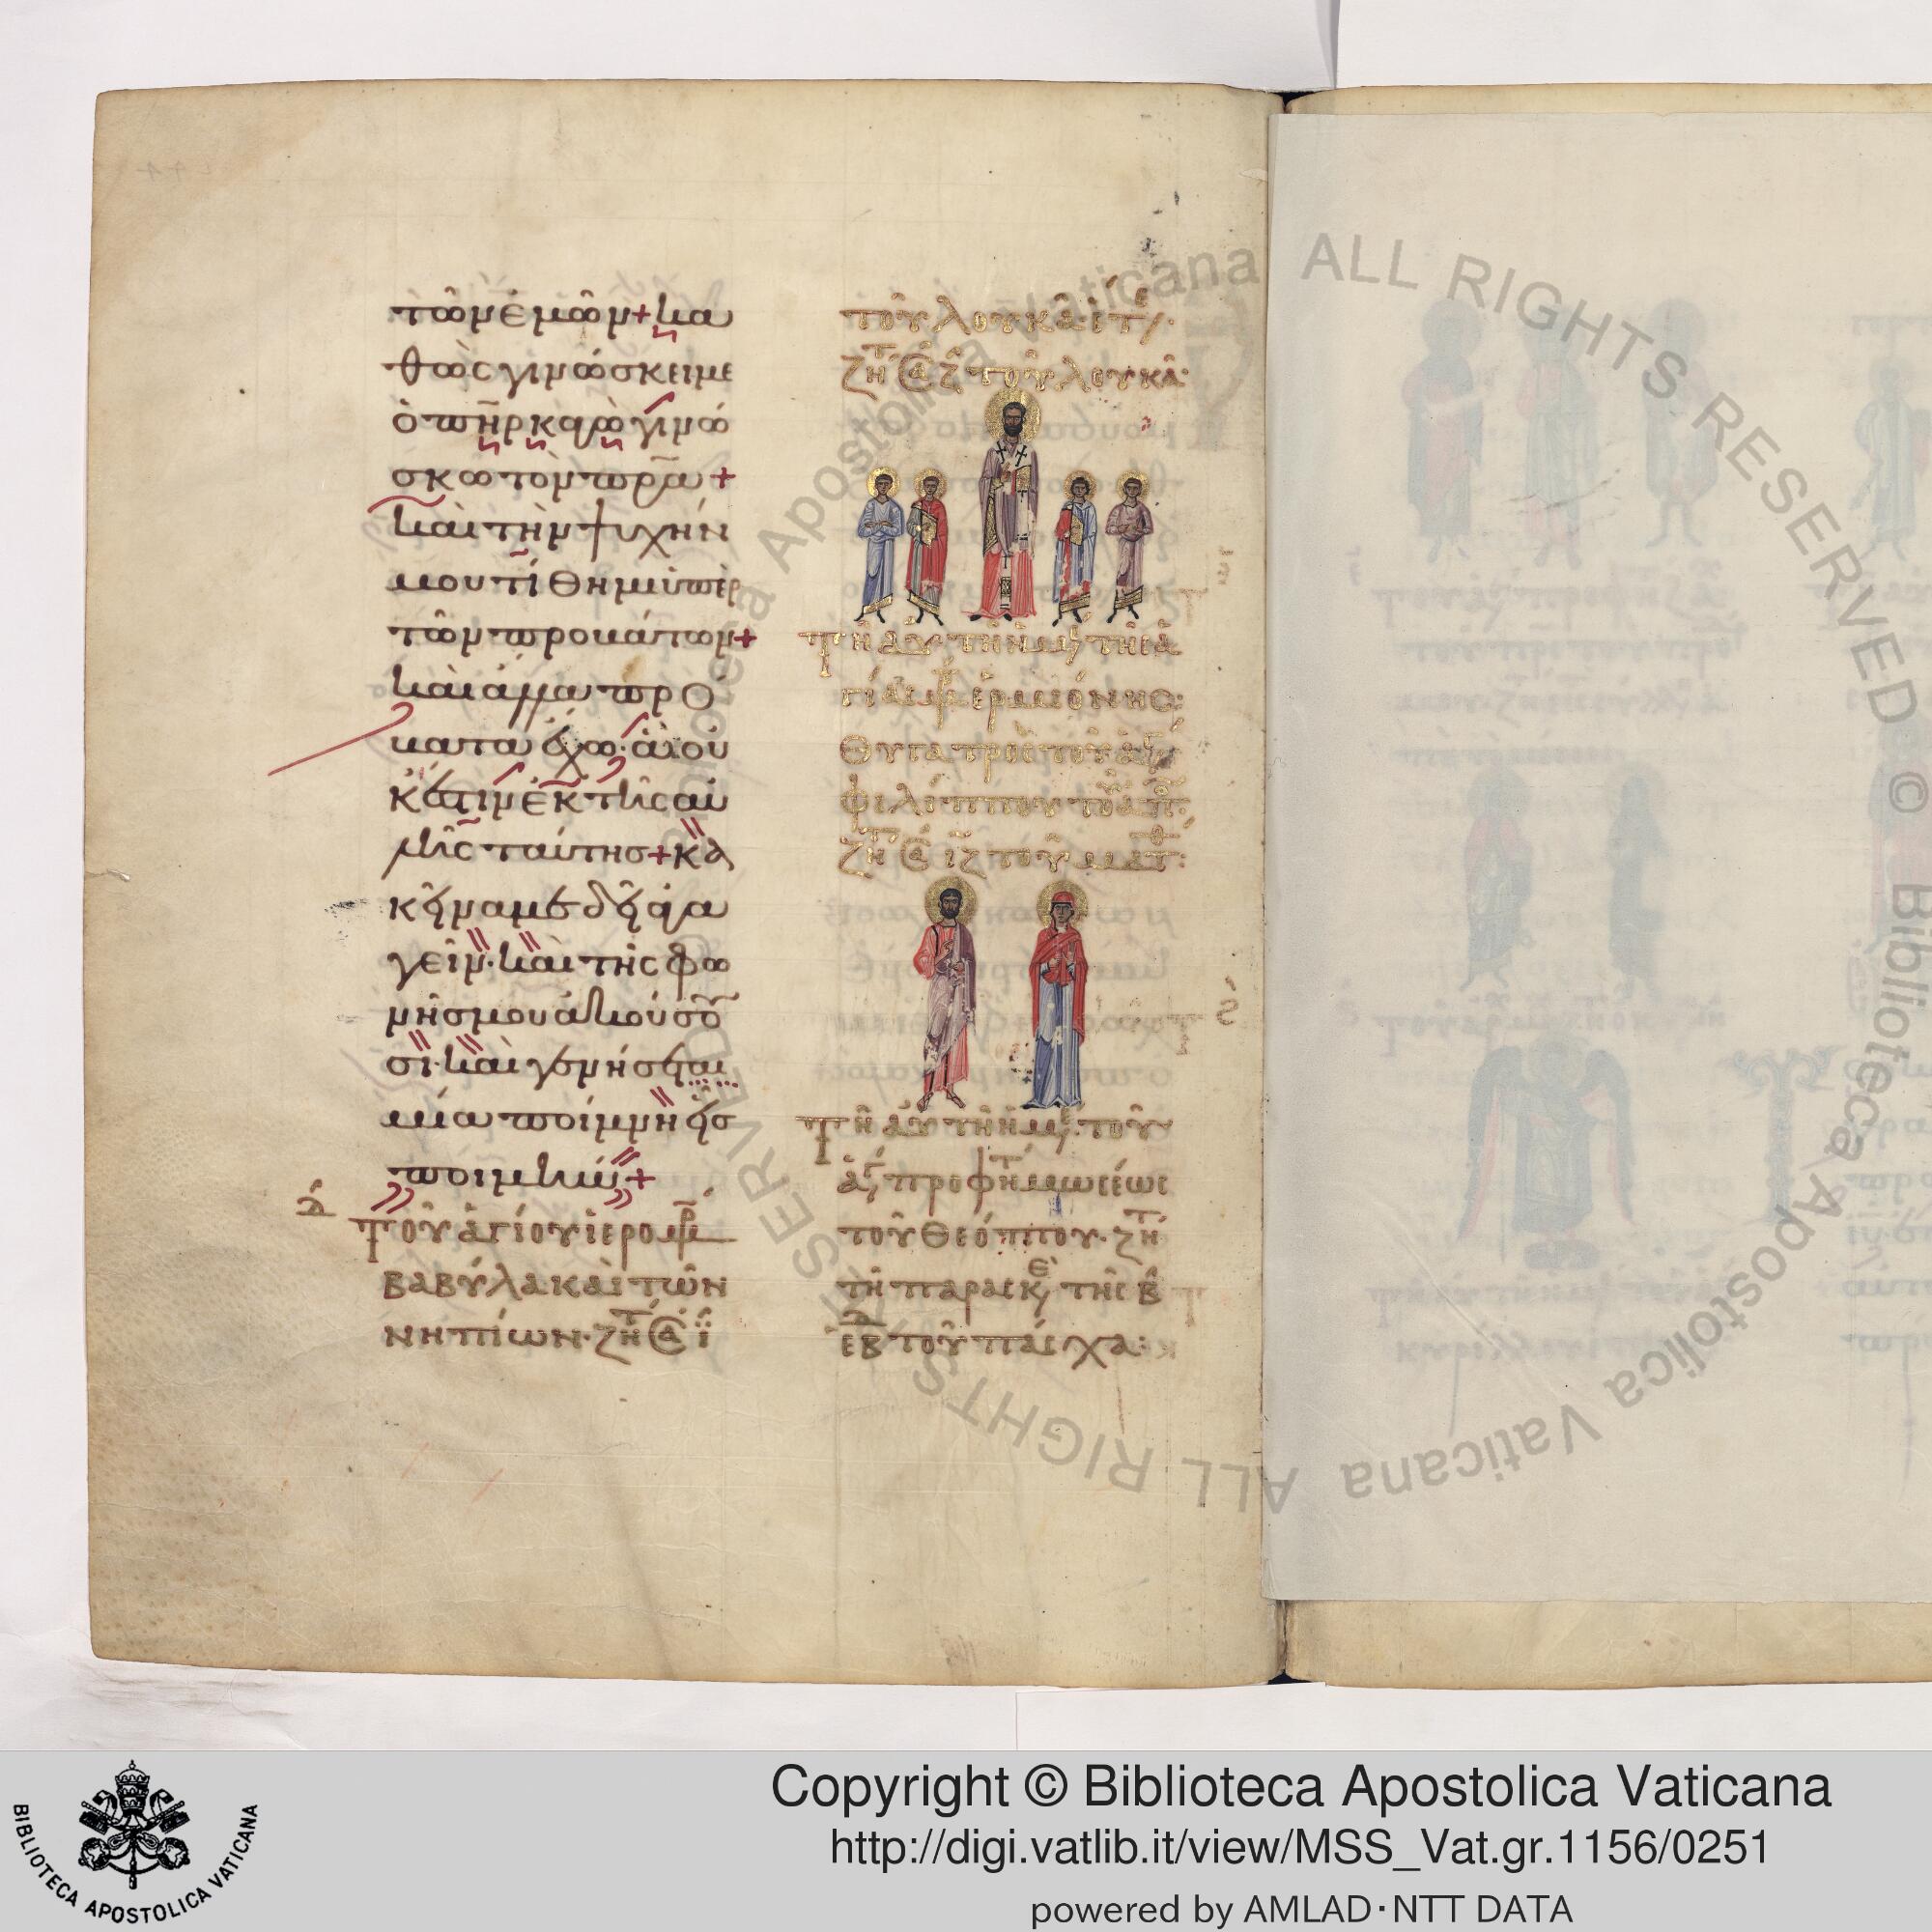 τῶν ἐμῶν + κα
θὼς γινώσκει με
ὁ π̅η̅ρ κἀγὼ γινώ
σκω τὸν π̅ρ̅α +
καὶ τὴν ψυχήν
μου τίθημι ὑπὲρ
τῶν προβάτων +
καὶ ἄλλα πρό
βατα ἔχω· ἃ οὐ
κ ἔστιν ἐκ τῆς αὐ
λῆς ταύτης + κἀ
κεῖνά με δεῖ ἀγα
γεῖν· καὶ τῆς φω
νῆς μου ἀκούσου
σι· καὶ γενήσεται
μία ποίμνη εἷς
ποιμήν +
δ
Τοῦ ἁγίου ἱερομρ
Βαβύλα καὶ τῶν
νηπίων· ζητ
τοῦ λουκᾶ·
ζητ ζ τοῦ λουκᾶ:
Τῆ αὐτῆ ἡμ τῆς ἁ
γίας μρ ἑρμιόνης:
θυγατρὸς τοῦ ἁγίου
φιλίππου τοῦ ἀπ:
ζητ ιζ τοῦ ματθ:
Τῆ αὐτῆ ἡμ· τοῦ
ἁγ προφητ μωσέως
τοῦ θεόπτου· ζητ
τῆ παρασκε τῆς β
εβδ τοῦ πάσχα:
ALL RIGHTS RESERVED
© Biblioteca Apostolica Vaticana
ALL RIGHTS RESERVED
Biblioteca Apostolica Vaticana
BIBLIOTECA APOSTOLICA VATICANA
Copyright © Biblioteca Apostolica Vaticana
http://digi.vatlib.it/view/MSS_Vat.gr.1156/0251
powered by AMLAD·NTT DATA